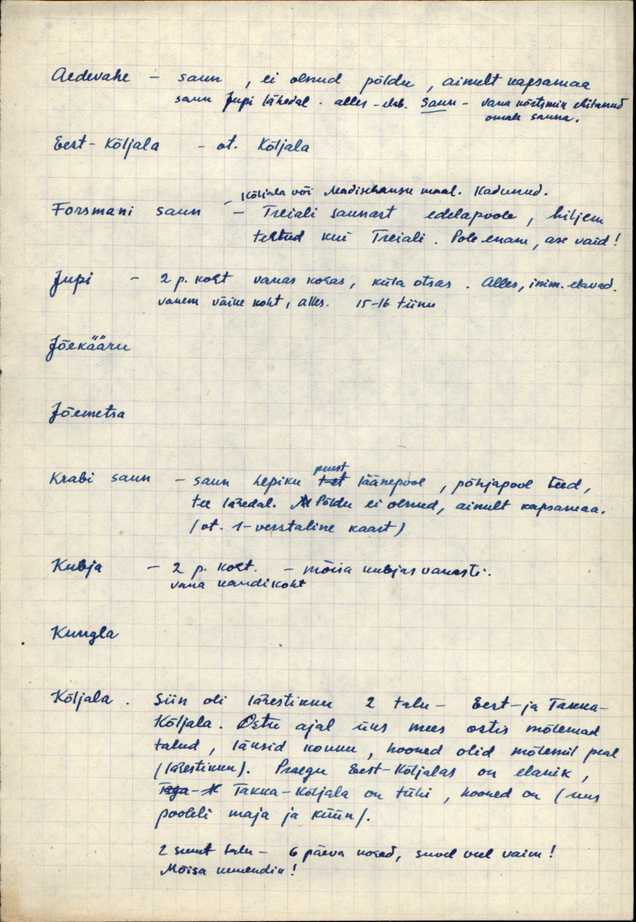 Aedevahe - saun, ei olnud põldu, ainult kapsamaa
saun Jupi lähedal. alles - ehit. Saun - vana nõtsmik ehitanud
omale sauna.
Eest-Kõljala - vt. Kõljala
Kõljala või maal. Kadunud.
Forsmani saun - Treiali saunast edelapoole, hiljem
tehtud kui Treiali. Pole enam, ase vaid!
Jupi - 2 p. koht vanas kohas, küla otsas. Alles, inim. elavad.
vanem väike koht, alles. 15-16 tiinu
Jõekääru
Jõemetsa
Krabi saun - saun Lepiku puust läänepool, põhjapool teed,
tee lähedal. Põldu ei olnud, ainult kapsamaa.
(vt. 1-verstaline kaart)
Kubja - 2 p. koht. - mõisa kubjas vanasti.
vana kandikoht
Kungla
Kõljala. Siin oli lähestikku 2 talu - Eest- ja Takka-
Kõljala. Ostu ajal üks mees ostis mõlemad
talud, läksid kokku, hooned olid mõlemil peal
(lähestikku). Praegu Eest-Kõljalas on elanik,
Taga- Takka-Kõljala on tühi, hooned on (uus
pooleli maja ja küün).
2 suurt talu - 6 päeva kohad, suved veel vaim!
Mõisa